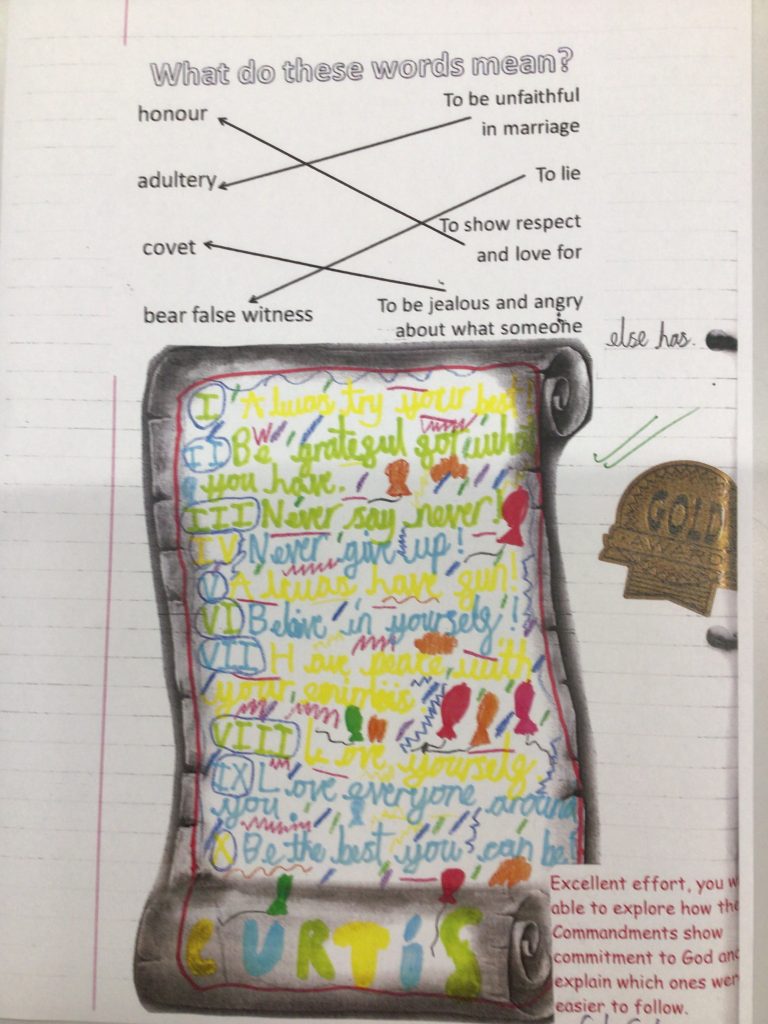 What do these words mean?
honour
To be unfaithful
in marriage
adultery
To lie
covet
To show respect
and love for
bear false witness
To be jealous and angry
about what someone else has.
I Alwas try your best!
II Be grateful for what
you have.
III Never say never!
IV Never give up!
V Alwas have fun!
VI Beleive in yourself!
VII Have peace with
your enimies
VIII Love yourself
IX Love everyone around
you.
X Be the best you can be!
CURTIS
GOLD
AWARD
Excellent effort, you w
able to explore how the
Commandments show
commitment to God and
explain which ones wer
easier to follow.